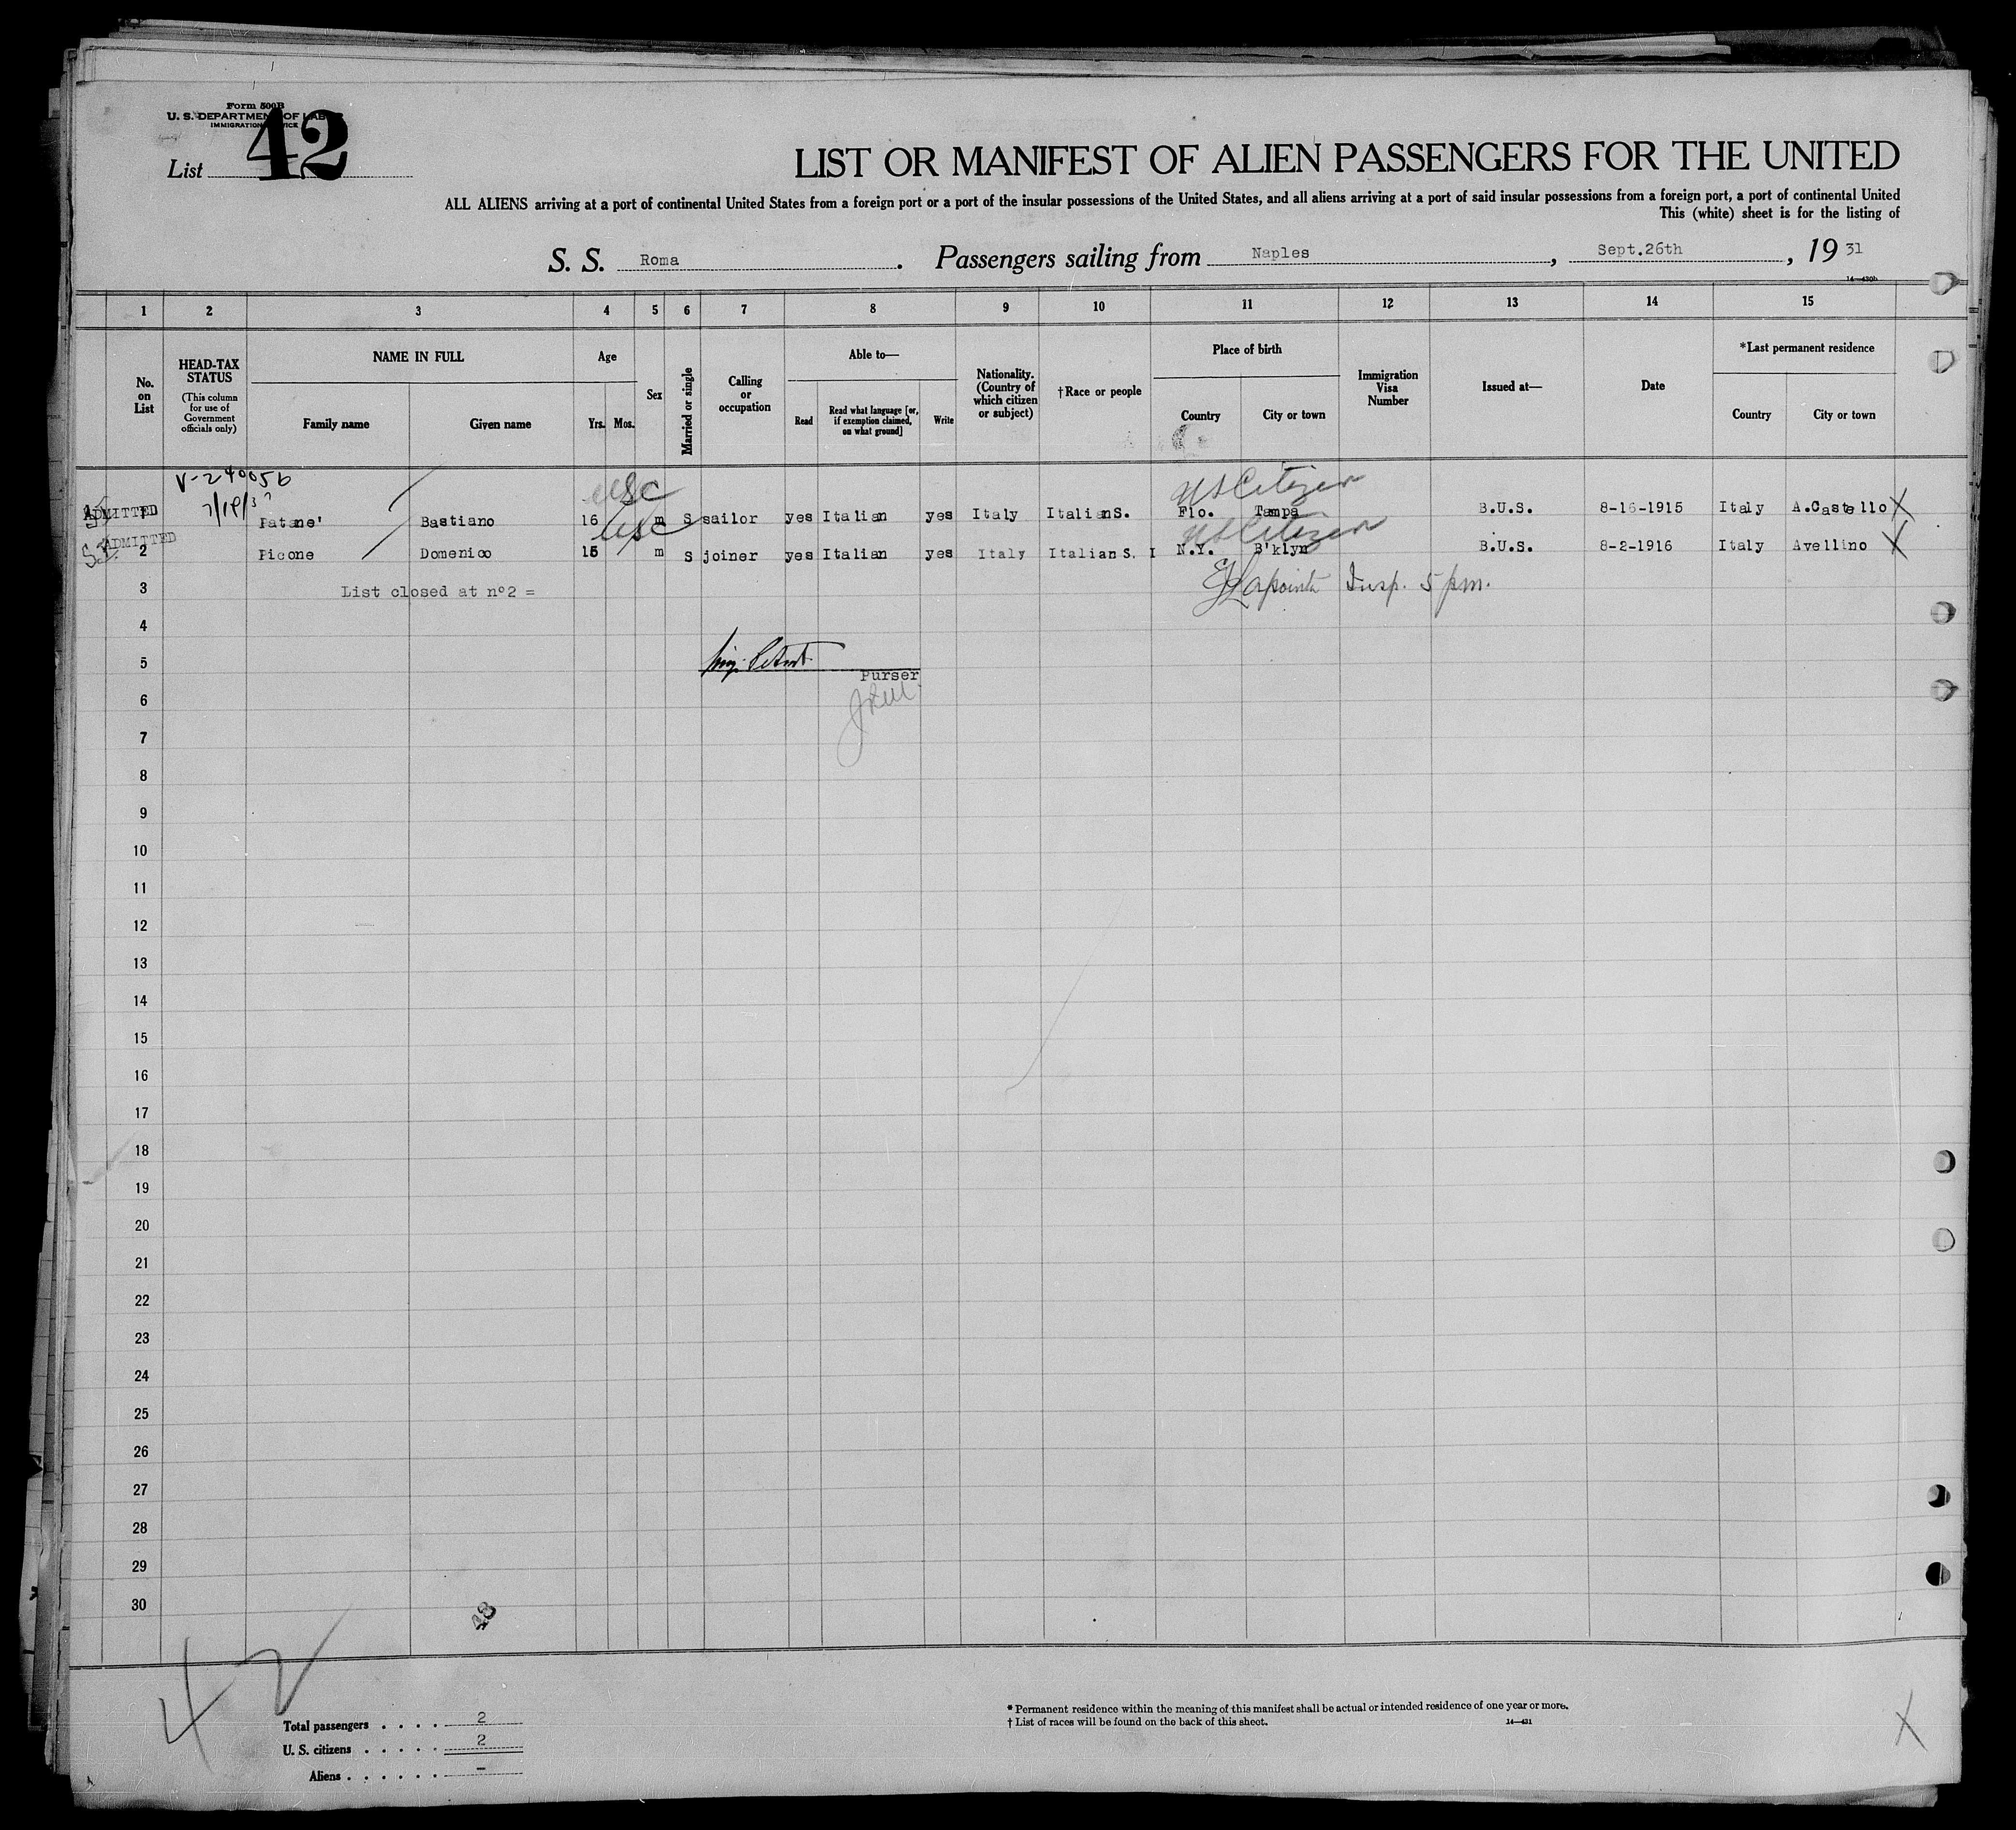 Form 500B
U. S. DEPARTMENT OF LABOR
IMMIGRATION SERVICE
List 42
LIST OR MANIFEST OF ALIEN PASSENGERS FOR THE UNITED
ALL ALIENS arriving at a port of continental United States from a foreign port or a port of the insular possessions of the United States, and all aliens arriving at a port of said insular possessions from a foreign port, a port of continental United
This (white) sheet is for the listing of
S. S. Roma. Passengers sailing from Naples, Sept.26th, 1931
14—430b
1 2 3 4 5 6 7 8 9 10 11 12 13 14 15
No. on List
HEAD-TAX STATUS
(This column for use of Government officials only)
NAME IN FULL
Family name Given name
Age
Yrs. Mos.
Sex
Married or single
Calling or occupation
Able to—
Read
Read what language [or, if exemption claimed, on what ground]
Write
Nationality. (Country of which citizen or subject)
†Race or people
Place of birth
Country City or town
Immigration Visa Number
Issued at—
Date
*Last permanent residence
Country City or town
V-240056
USC US Citizen
ADMITTED 1 Patane' Bastiano 16 m S sailor yes Italian yes Italy Italian S. Flo. Tampa B.U.S. 8-16-1915 Italy A.Castello X
USC US Citizen
ADMITTED 2 Picone Domenico 15 m S joiner yes Italian yes Italy Italian S. I N.Y. B'klyn B.U.S. 8-2-1916 Italy Avellino X
3 List closed at nº2 = EJ Lapointe Insp. 5 pm.
4
5
Purser
6
7
8
9
10
11
12
13
14
15
16
17
18
19
20
21
22
23
24
25
26
27
28
29
30
48
42
Total passengers . . . . 2
U. S. citizens . . . . . 2
Aliens . . . . . . –
* Permanent residence within the meaning of this manifest shall be actual or intended residence of one year or more.
† List of races will be found on the back of this sheet.
14—431
X